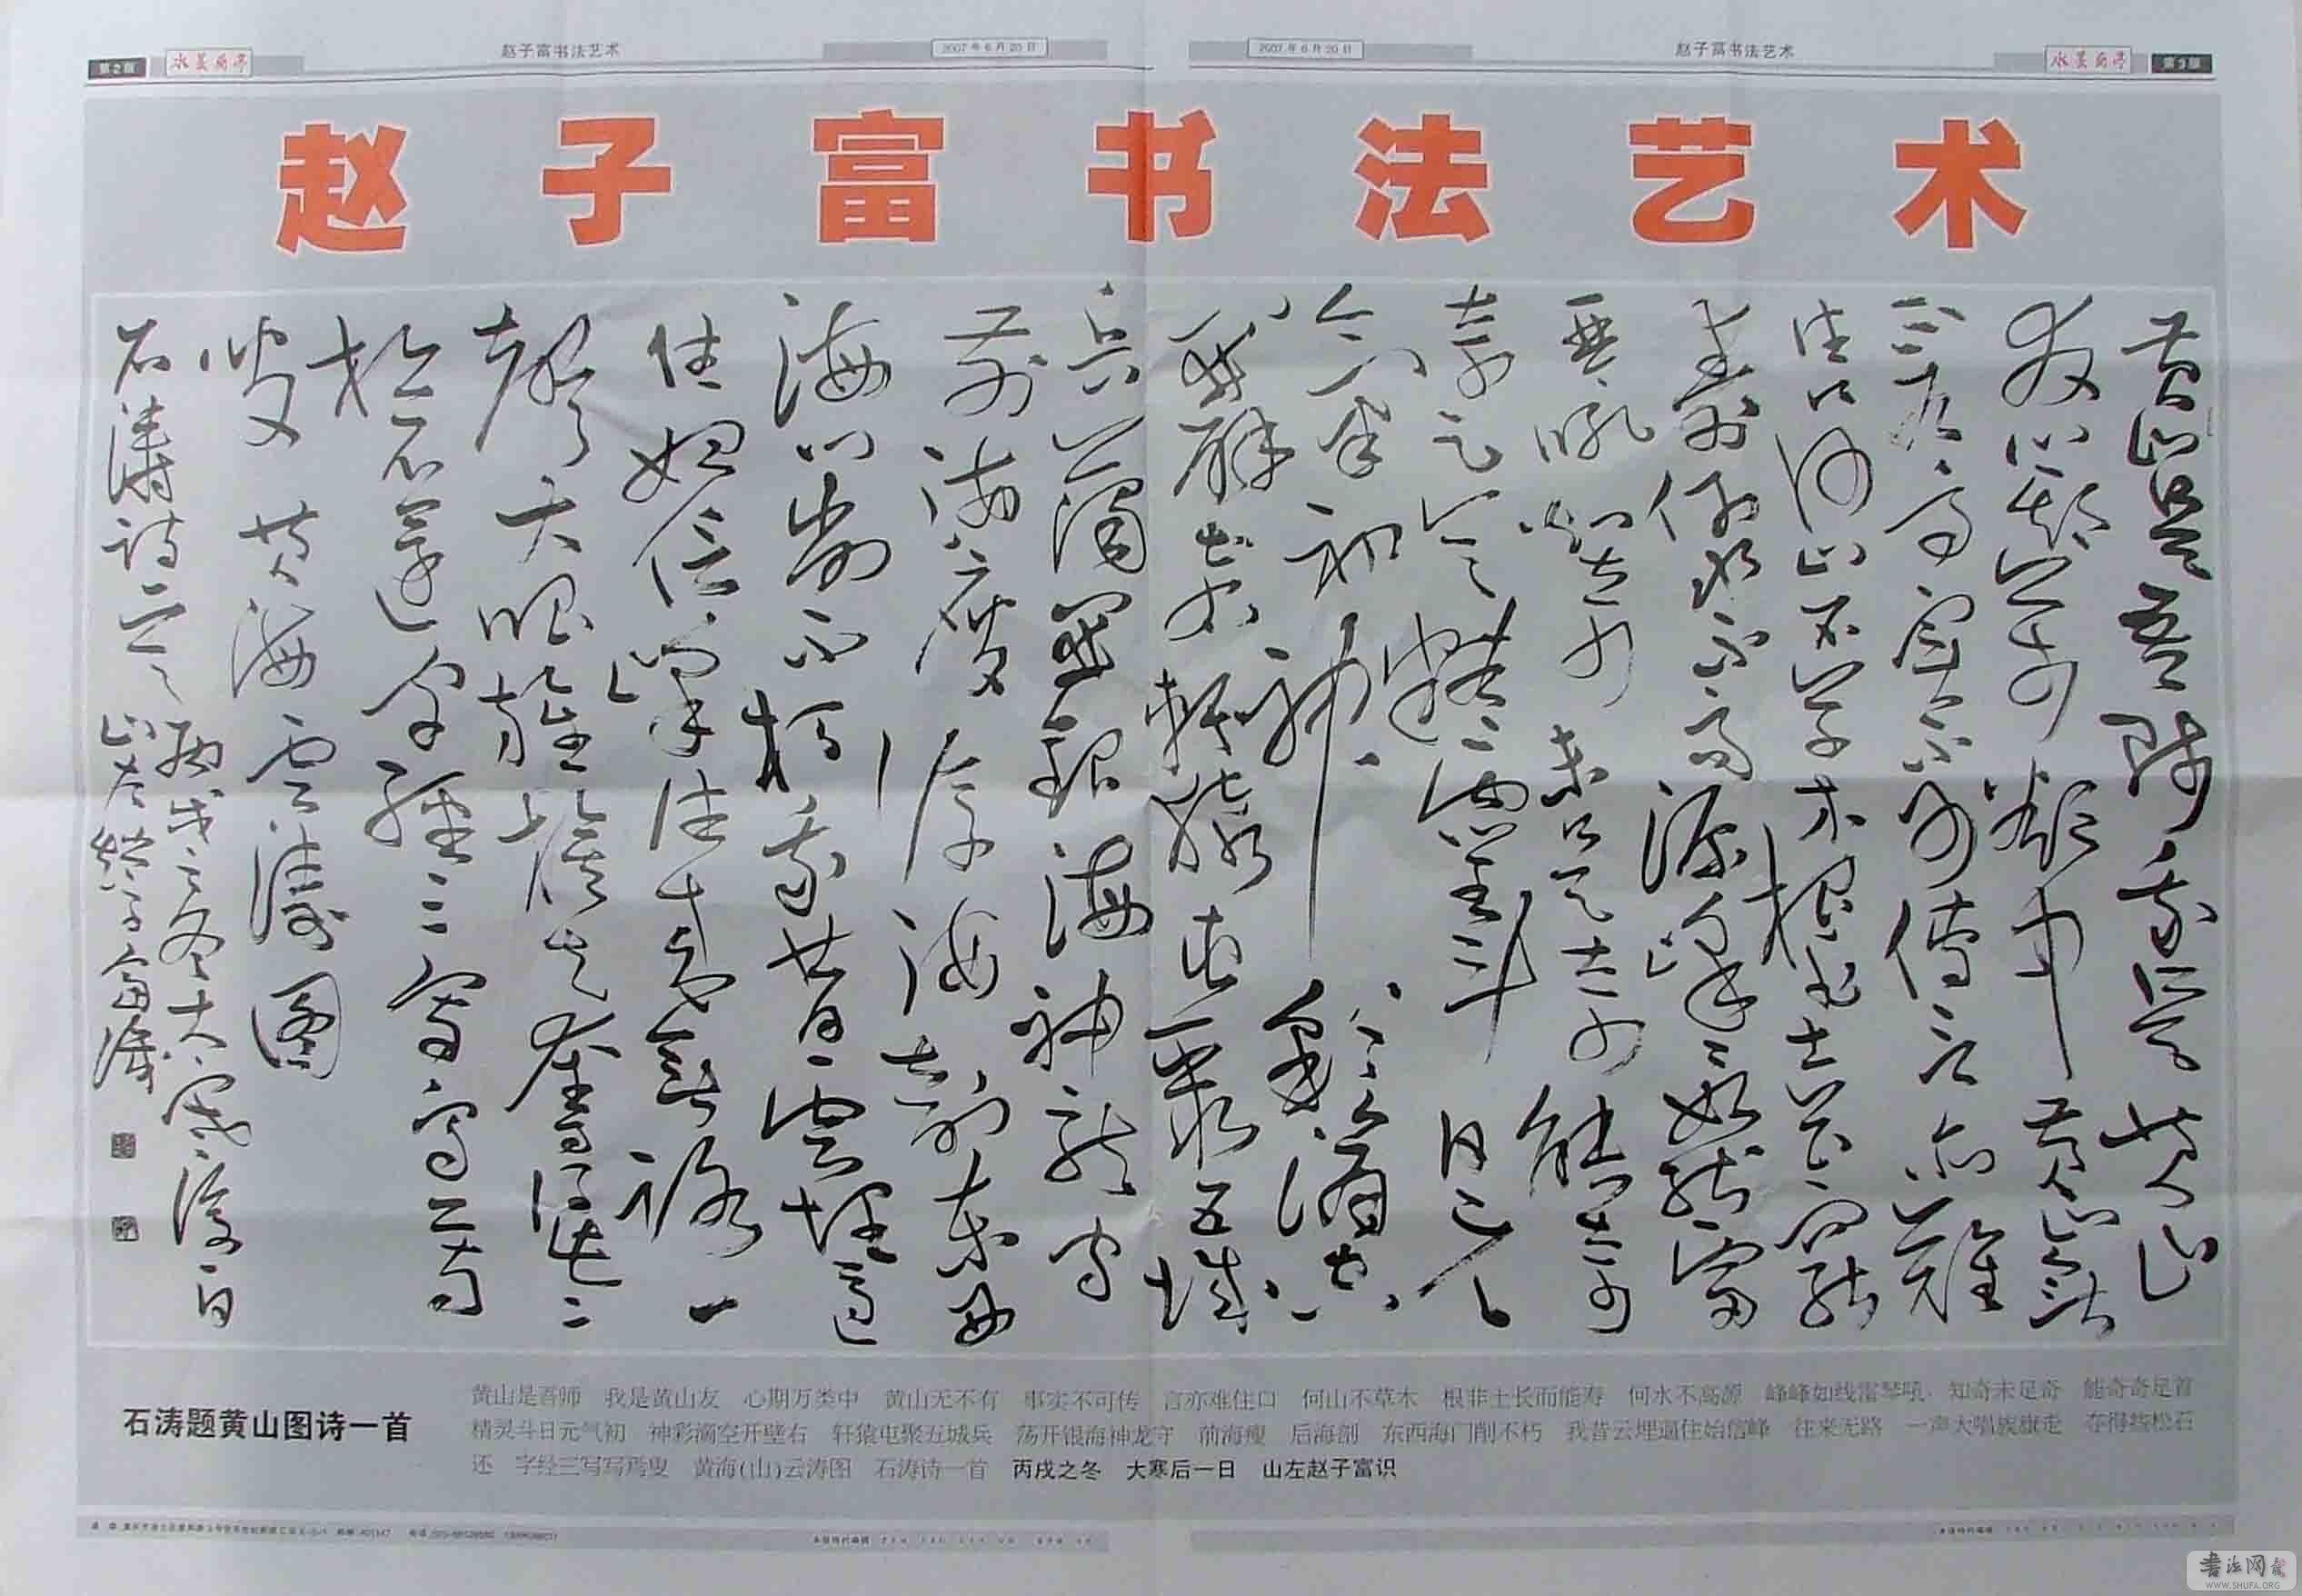 第2版 水墨兰亭 赵子富书法艺术 2007年6月20日 2007年6月20日 赵子富书法艺术 水墨兰亭 第3版
赵子富书法艺术
黄山是吾师我是黄山
友心期万类中黄山无
不有事实不可传言亦难
住口何山不草木根非土长而能
寿何水不高源峰峰如线雷
琴吼知奇未足奇能奇奇
足首精灵斗日元
气初神彩滴空
开辟右轩辕屯聚五城
兵荡开银海神龙守
前海瘦后海剖东西
海门削不朽我昔云埋逼
住始信峰往来无路一
声大喝旌旗走夺得些
松石还字经三写写焉
叟黄海云涛图
石涛诗一首丙戌之冬大寒后一日
山左赵子富识
石涛题黄山图诗一首
黄山是吾师 我是黄山友 心期万类中 黄山无不有 事实不可传 言亦难住口 何山不草木 根非土长而能寿 何水不高源 峰峰如线雷琴吼 知奇未足奇 能奇奇足首
精灵斗日元气初 神彩滴空开壁右 轩猿屯聚五城兵 荡开银海神龙守 前海瘦 后海剖 东西海门削不朽 我昔云埋逼住始信峰 往来无路 一声大唱旌旗走 夺得些松石
还 字经三写写焉叟 黄海(山)云涛图 石涛诗一首 丙戌之冬 大寒后一日 山左赵子富识
书法网
WWW.SHUFA.ORG